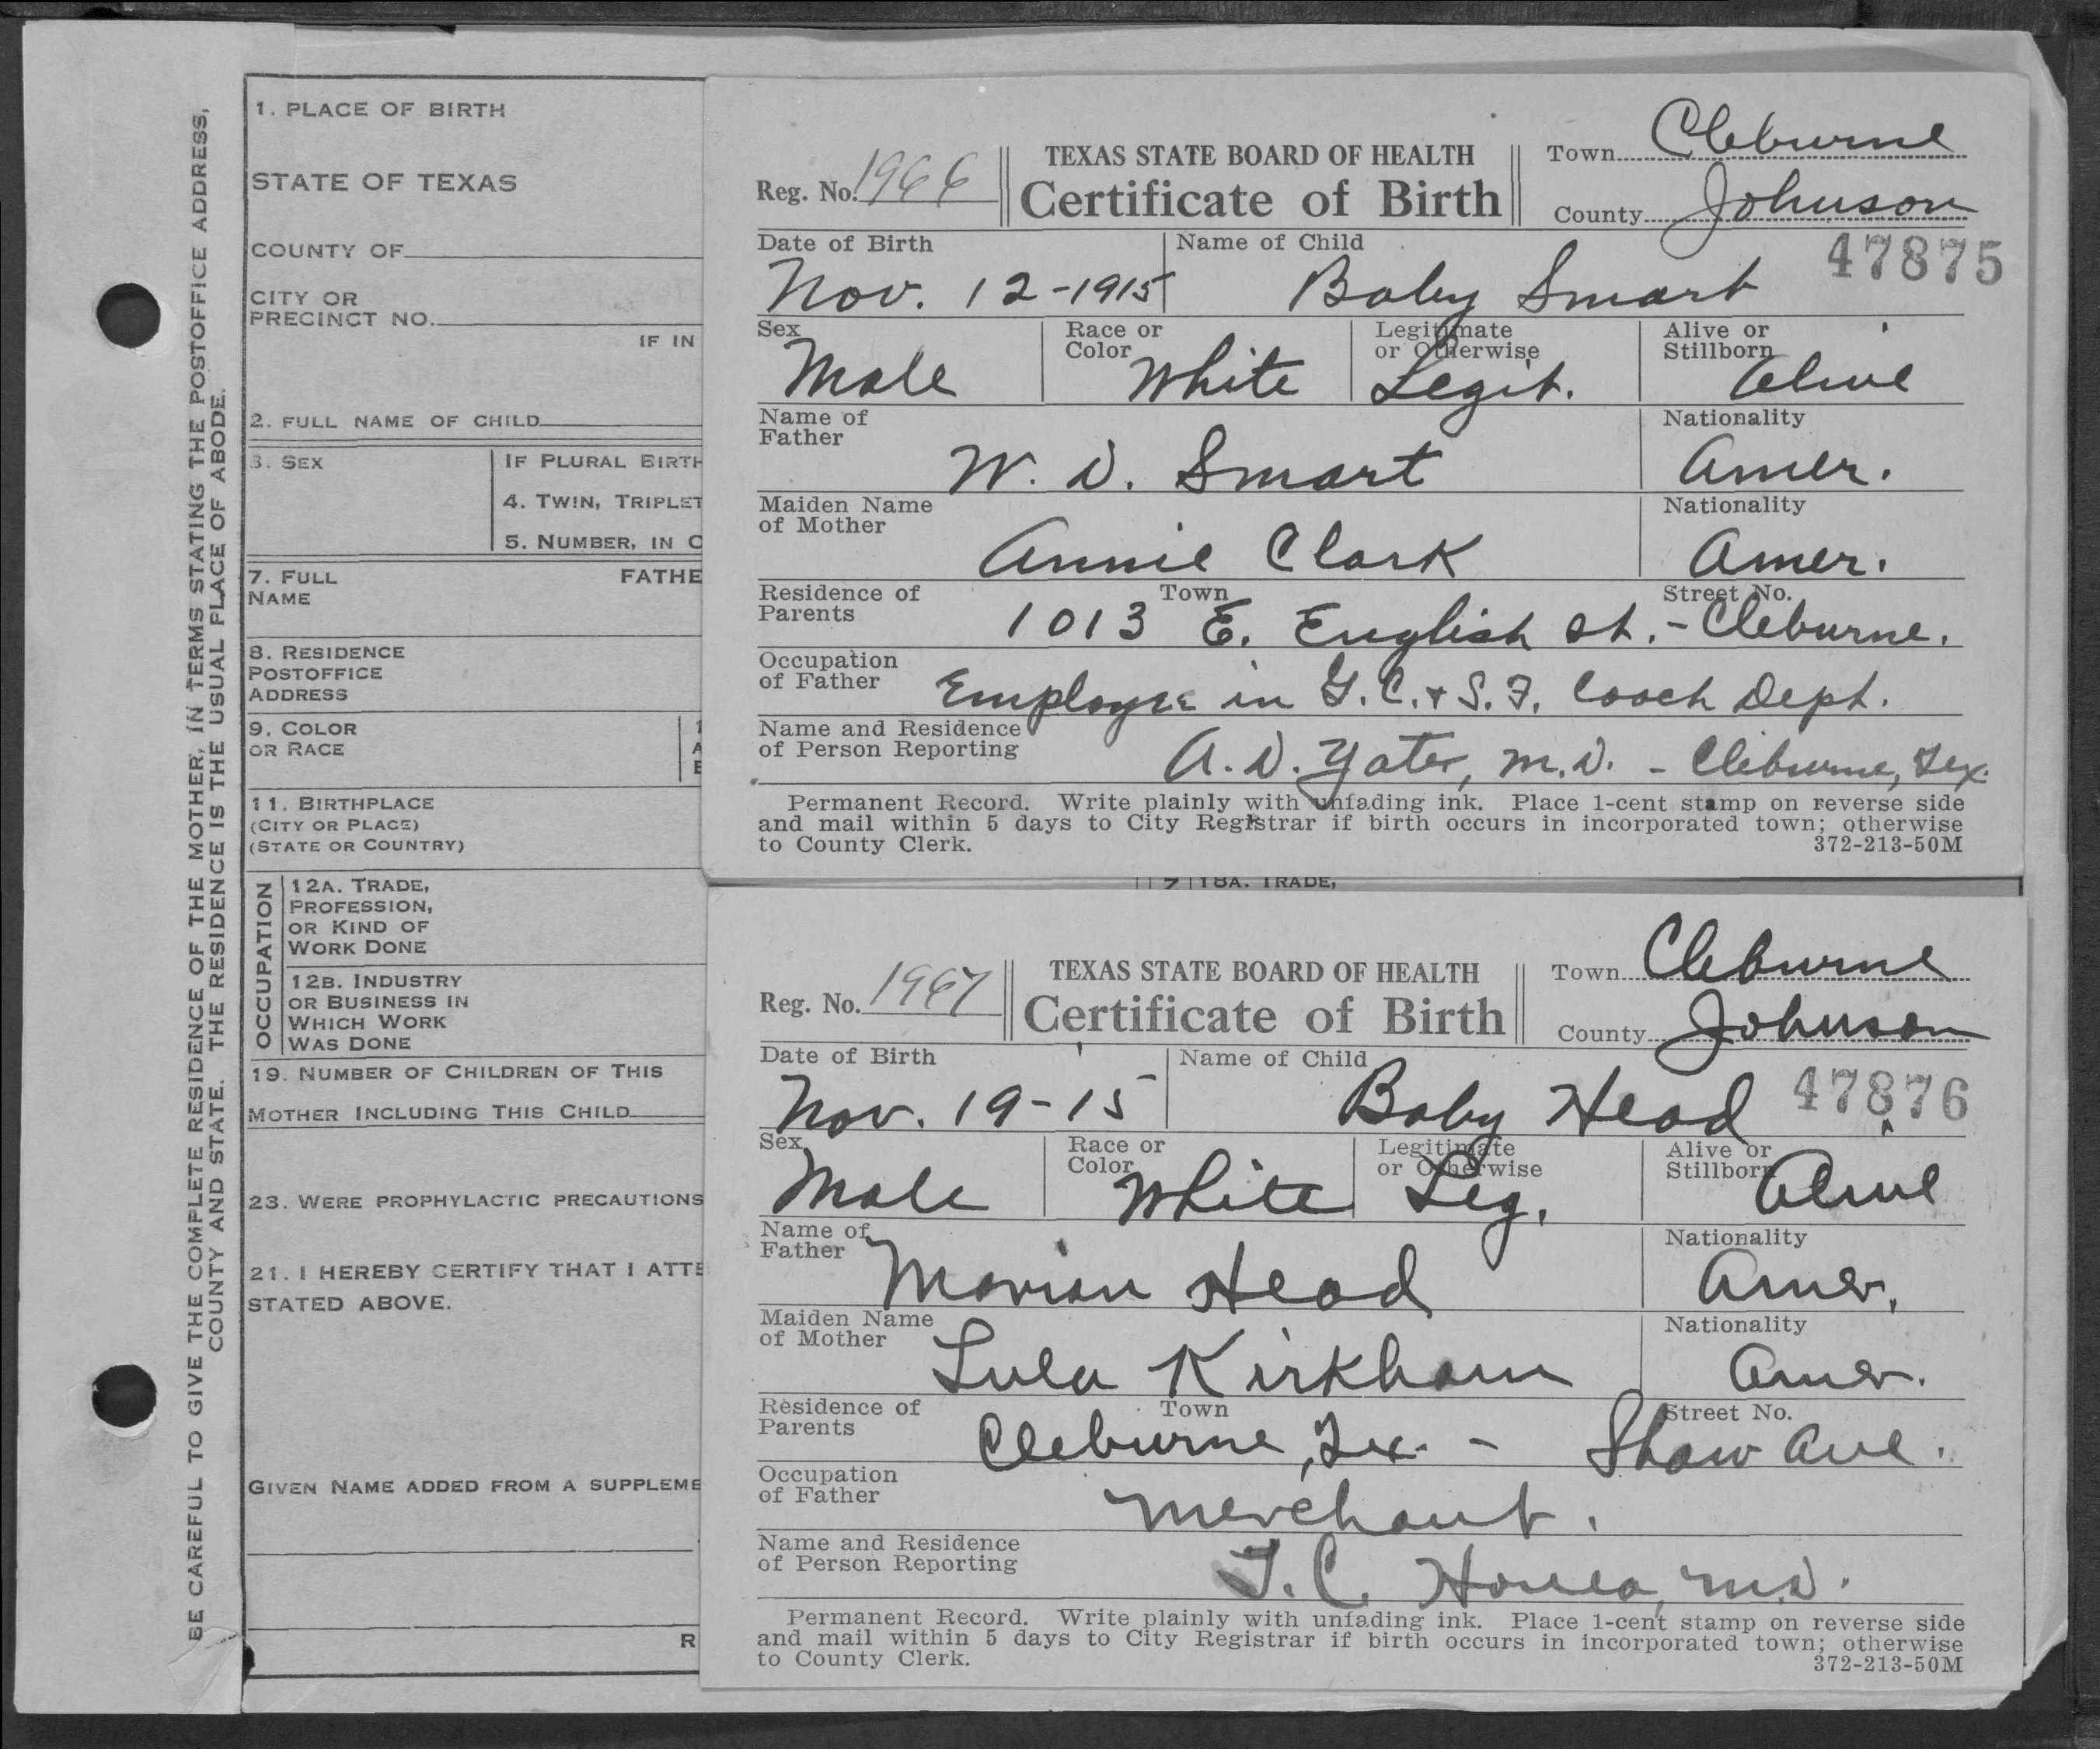 BE CAREFUL TO GIVE THE COMPLETE RESIDENCE OF THE MOTHER, IN TERMS STATING THE POSTOFFICE ADDRESS,
COUNTY AND STATE. THE RESIDENCE IS THE USUAL PLACE OF ABODE.
1. PLACE OF BIRTH
STATE OF TEXAS
COUNTY OF
CITY OR
PRECINCT NO.
IF IN
2. FULL NAME OF CHILD
3. SEX
IF PLURAL BIRTH
4. TWIN, TRIPLET
5. NUMBER, IN O
7. FULL
NAME
FATHE
8. RESIDENCE
POSTOFFICE
ADDRESS
9. COLOR
OR RACE
11. BIRTHPLACE
(CITY OR PLACE)
(STATE OR COUNTRY)
OCCUPATION
12A. TRADE,
PROFESSION,
OR KIND OF
WORK DONE
12B. INDUSTRY
OR BUSINESS IN
WHICH WORK
WAS DONE
19. NUMBER OF CHILDREN OF THIS
MOTHER INCLUDING THIS CHILD
23. WERE PROPHYLACTIC PRECAUTIONS
21. I HEREBY CERTIFY THAT I ATTE
STATED ABOVE.
GIVEN NAME ADDED FROM A SUPPLEME
R
Reg. No. 1966
TEXAS STATE BOARD OF HEALTH
Certificate of Birth
Town Cleburne
County Johnson
47875
Date of Birth Name of Child
Nov. 12-1915 Baby Smart
Sex Race or Color Legitimate or Otherwise Alive or Stillborn
Male White Legit. Alive
Name of Father Nationality
W. D. Smart Amer.
Maiden Name of Mother Nationality
Annie Clark Amer.
Residence of Parents Town Street No.
1013 E. English St. - Cleburne.
Occupation of Father
Employee in G. C. & S. F. Coach Dept.
Name and Residence of Person Reporting
A. D. Yater, M.D. - Cleburne, Tex.
Permanent Record. Write plainly with unfading ink. Place 1-cent stamp on reverse side
and mail within 5 days to City Registrar if birth occurs in incorporated town; otherwise
to County Clerk. 372-213-50M
18A. TRADE,
Reg. No. 1967
TEXAS STATE BOARD OF HEALTH
Certificate of Birth
Town Cleburne
County Johnson
47876
Date of Birth Name of Child
Nov. 19-15 Baby Head
Sex Race or Color Legitimate or Otherwise Alive or Stillborn
Male White Leg. Alive
Name of Father Nationality
Marion Head Amer.
Maiden Name of Mother Nationality
Lula Kirkham Amer.
Residence of Parents Town Street No.
Cleburne, Tex. - Shaw Ave.
Occupation of Father
Merchant.
Name and Residence of Person Reporting
T. C. M.D.
Permanent Record. Write plainly with unfading ink. Place 1-cent stamp on reverse side
and mail within 5 days to City Registrar if birth occurs in incorporated town; otherwise
to County Clerk. 372-213-50M